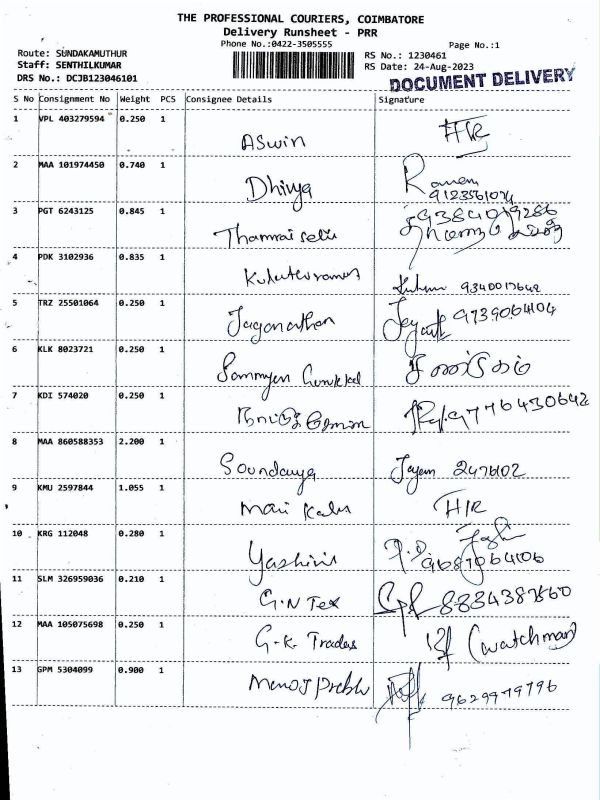 THE PROFESSIONAL COURIERS, COIMBATORE
Delivery Runsheet - PRR
Phone No.:0422-3505555
Page No.:1
Route: SUNDAKAMUTHUR
RS No.: 1230461
Staff: SENTHILKUMAR
RS Date: 24-Aug-2023
DRS No.: DCJB123046101
DOCUMENT DELIVERY
S No Consignment No Weight PCS Consignee Details Signature
1 VPL 403279594 0.250 1
Aswin H/R
2 MAA 101974450 0.740 1
Dhivya
3 PGT 6243125 0.845 1
Thamarai selvi
4 PDK 3102936 0.835 1
9340017642
5 TRZ 25501064 0.250 1
Jaganathan 9739064104
6 KLK 8023721 0.250 1
7 KDI 574020 0.250 1
9776430642
8 MAA 860588353 2.200 1
Soundarya Jayam 2476102
9 KMU 2597844 1.055 1
Mari H/R
10 KRG 112048 0.280 1
Yashini 9687064106
11 SLM 326959036 0.210 1
G.N Tex
12 MAA 105075698 0.250 1
G.K. Trades (watchman)
13 GPM 5304099 0.900 1
Manoj Prabhu 9629979796